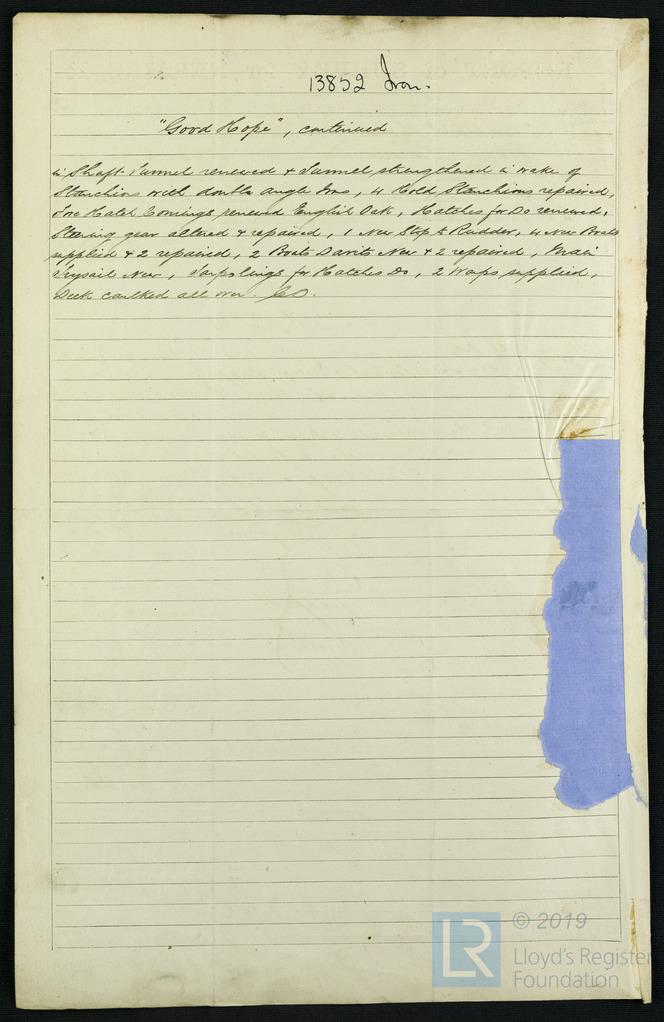 13852 Iron.
"Good Hope", continued
in Shaft Tunnel renewed & Tunnel strengthened in wake of
Stanchions with double angle Irons, 4 Hold Stanchions repaired,
Fore Hatch Comings renewed English Oak, Hatches for Do renewed,
Steering gear altered & repaired, 1 New Stop to Rudder, 4 New Boats
supplied & 2 repaired, 2 Boats Davits New & 2 repaired, Main
Trysail New, Tarpolings for Hatches Do, 2 Warps supplied,
Deck caulked all over.
LR
© 2019
Lloyd's Register
Foundation